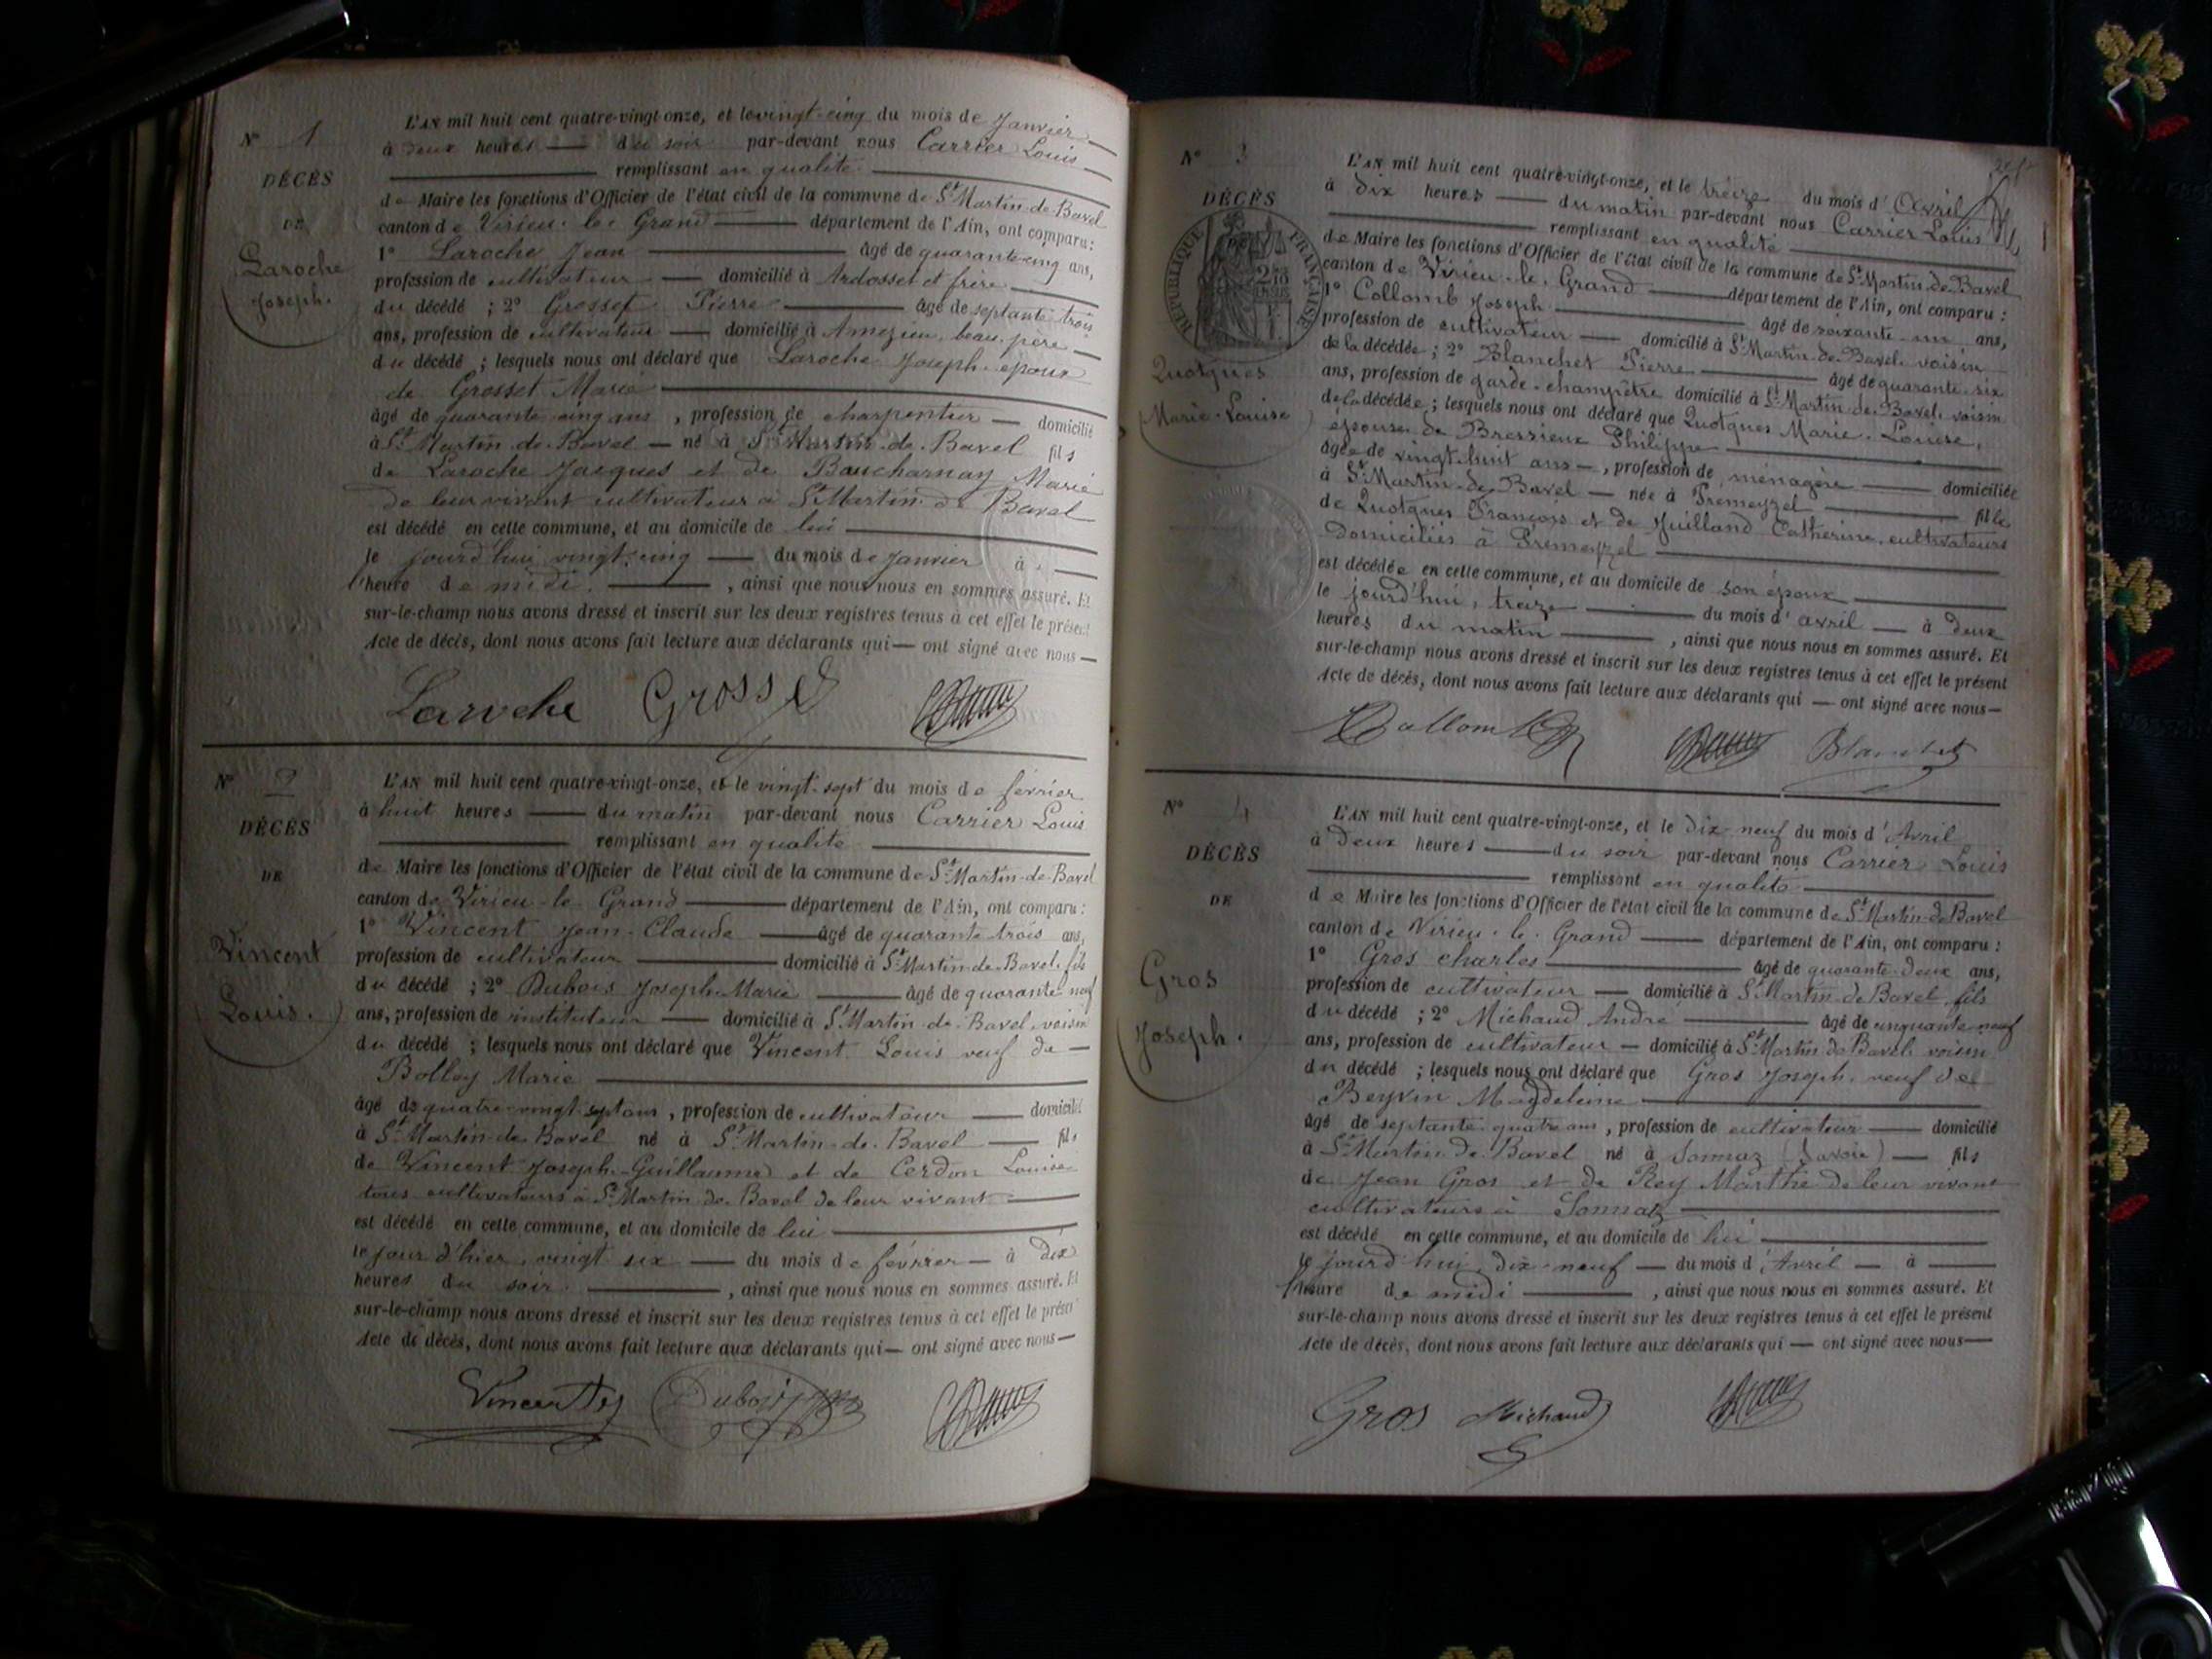 N° 1
DÉCÈS
DE
Laroche
Joseph.
L'AN mil huit cent quatre-vingt-onze, et le vingt-cinq du mois de Janvier
à deux heures du soir par-devant nous Carrier Louis
remplissant en qualité
de Maire les fonctions d'Officier de l'état civil de la commune de St Martin-de-Bavel
canton de Virieu-le-Grand département de l'Ain, ont comparu :
1° Laroche Jean âgé de quarante-cinq ans,
profession de cultivateur domicilié à Ardosset et frère
du décédé ; 2° Grosset Pierre âgé de septante trois
ans, profession de cultivateur domicilié à Amezieu, beau-père
du décédé ; lesquels nous ont déclaré que Laroche Joseph époux
de Grosset Marie
âgé de quarante cinq ans, profession de charpentier domicilié
à St Martin-de-Bavel né à St Martin-de-Bavel fils
de Laroche Jacques et de Baucharnay Marie
de leur vivant cultivateur à St Martin-de Bavel
est décédé en cette commune, et au domicile de lui
le jourd'hui vingt-cinq du mois de Janvier à
l'heure de midi. , ainsi que nous nous en sommes assuré. Et
sur-le-champ nous avons dressé et inscrit sur les deux registres tenus à cet effet le présent
Acte de décès, dont nous avons fait lecture aux déclarants qui ont signé avec nous
Laroche Grosset
N° 2
DÉCÈS
DE
Vincent
Louis.
L'AN mil huit cent quatre-vingt-onze, et le vingt-sept du mois de février
à huit heures du matin par-devant nous Carrier Louis
remplissant en qualité
de Maire les fonctions d'Officier de l'état civil de la commune de St Martin-de-Bavel
canton de Virieu-le-Grand département de l'Ain, ont comparu :
1° Vincent Jean-Claude âgé de quarante trois ans,
profession de cultivateur domicilié à St Martin-de-Bavel, fils
du décédé ; 2° Dubois Joseph-Marie âgé de quarante neuf
ans, profession de instituteur domicilié à St Martin-de-Bavel, voisin
du décédé ; lesquels nous ont déclaré que Vincent Louis veuf de
Bolley Marie
âgé de quatre-vingt-sept ans, profession de cultivateur domicilié
à St Martin-de Bavel né à St Martin-de-Bavel fils
de Vincent Joseph-Guillaume et de Cerdon Louise
tous cultivateurs à St Martin de Bavel de leur vivant
est décédé en cette commune, et au domicile de lui
le jour d'hier, vingt six du mois de février à dix
heures du soir. , ainsi que nous nous en sommes assuré. Et
sur-le-champ nous avons dressé et inscrit sur les deux registres tenus à cet effet le présent
Acte de décès, dont nous avons fait lecture aux déclarants qui ont signé avec nous
Vincent Dubois
N° 3
DÉCÈS
DE
RÉPUBLIQUE FRANÇAISE
Quotques
Marie-Louise
L'AN mil huit cent quatre-vingt-onze, et le treize du mois d'Avril
à dix heures du matin par-devant nous Carrier Louis
remplissant en qualité
de Maire les fonctions d'Officier de l'état civil de la commune de St Martin-de-Bavel
canton de Virieu-le-Grand département de l'Ain, ont comparu :
1° Collomb Joseph âgé de soixante-un ans,
profession de cultivateur domicilié à St Martin-de-Bavel, voisin
de la décédée ; 2° Blanchet Pierre âgé de quarante-six
ans, profession de garde-champêtre domicilié à St Martin-de-Bavel, voisin
de la décédée ; lesquels nous ont déclaré que Quotques Marie-Louise,
épouse de Bressieux Philippe
âgée de vingt-huit ans, profession de ménagère domiciliée
à St Martin-de-Bavel née à Premeyzel fille
de Quotques François et de Juilland Catherine, cultivateurs
domiciliés à Premeyzel
est décédée en cette commune, et au domicile de son époux
le jourd'hui, treize du mois d'avril à deux
heures du matin , ainsi que nous nous en sommes assuré. Et
sur-le-champ nous avons dressé et inscrit sur les deux registres tenus à cet effet le présent
Acte de décès, dont nous avons fait lecture aux déclarants qui ont signé avec nous
Collomb Blanchet
N° 4
DÉCÈS
DE
Gros
Joseph.
L'AN mil huit cent quatre-vingt-onze, et le dix-neuf du mois d'Avril
à deux heures du soir par-devant nous Carrier Louis
remplissant en qualité
de Maire les fonctions d'Officier de l'état civil de la commune de St Martin-de-Bavel
canton de Virieu-le-Grand département de l'Ain, ont comparu :
1° Gros charles âgé de quarante-deux ans,
profession de cultivateur domicilié à St Martin-de-Bavel, fils
du décédé ; 2° Michaud André âgé de cinquante neuf
ans, profession de cultivateur domicilié à St Martin-de-Bavel voisin
du décédé ; lesquels nous ont déclaré que Gros Joseph, veuf de
Beyvin Magdeleine
âgé de septante-quatre ans, profession de cultivateur domicilié
à St Martin-de-Bavel né à Sonnaz (Savoie) fils
de Jean Gros et de Rey Marthe de leur vivant
cultivateurs à Sonnaz
est décédé en cette commune, et au domicile de lui
le jourd'hui, dix-neuf du mois d'Avril à
l'heure de midi , ainsi que nous nous en sommes assuré. Et
sur-le-champ nous avons dressé et inscrit sur les deux registres tenus à cet effet le présent
Acte de décès, dont nous avons fait lecture aux déclarants qui ont signé avec nous
Gros Michaud